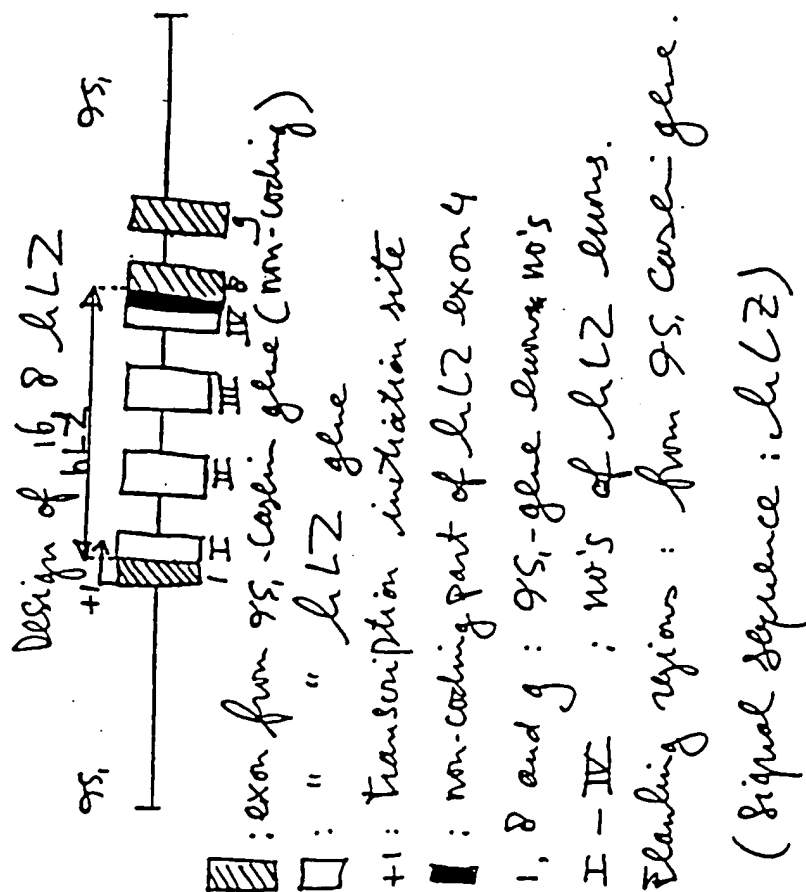 Design of 16,8 hLZ
αS₁ +1 hLZ αS₁
1 I II III IV 8 9
: exon from αS₁-casein gene (non-coding)
: " " hLZ gene
+1 : transcription initiation site
: non-coding part of hLZ exon 4
1, 8 and 9 : αS₁-gene exons no's
I - IV : no's of hLZ exons.
Flanking regions : from αS₁ casein gene.
(signal sequence : hLZ)